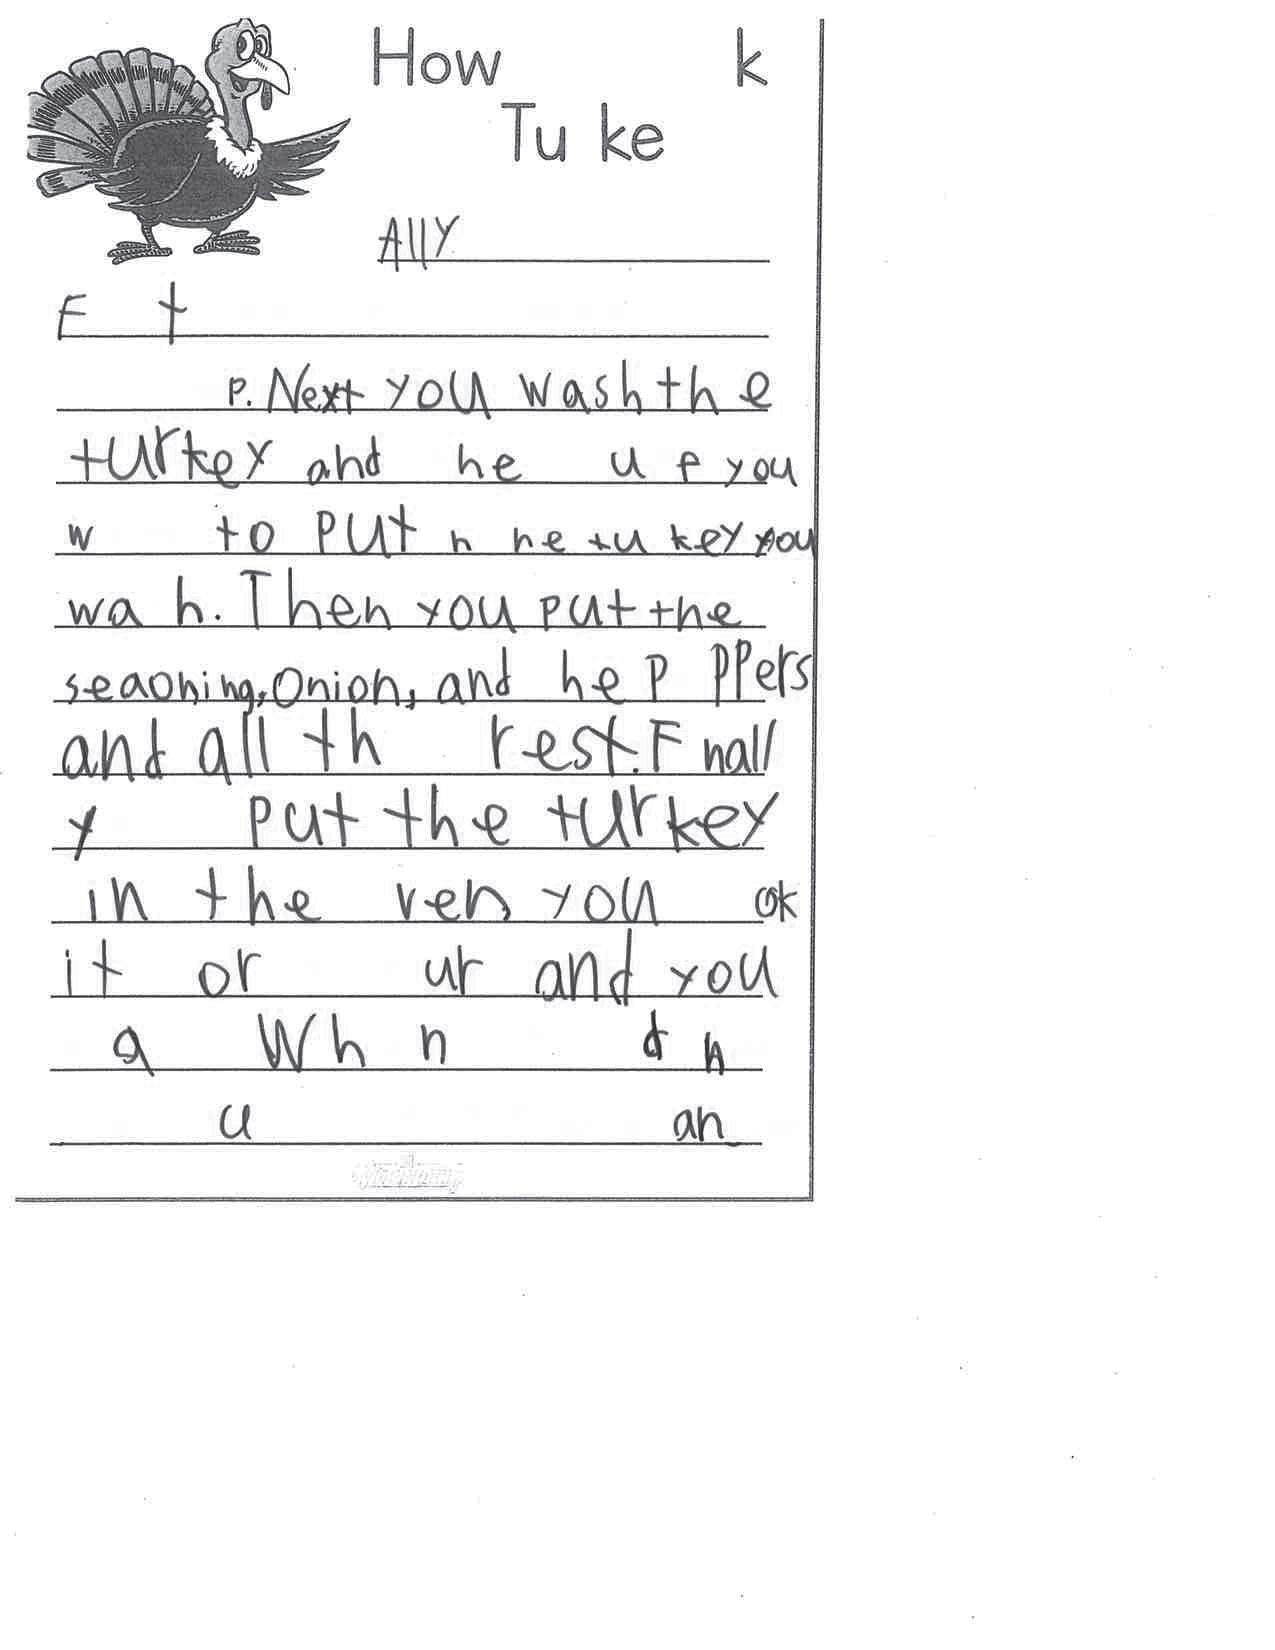 How k
Tu ke
Ally
F t
p. Next you wash the
turkey and he u f you
w to put n he tu key you
wa h. Then you put the
seaoning, Onion, and he p ppers
and all th rest. F nall
y put the turkey
in the ven you ok
it or ur and you
a Wh n d n
u an